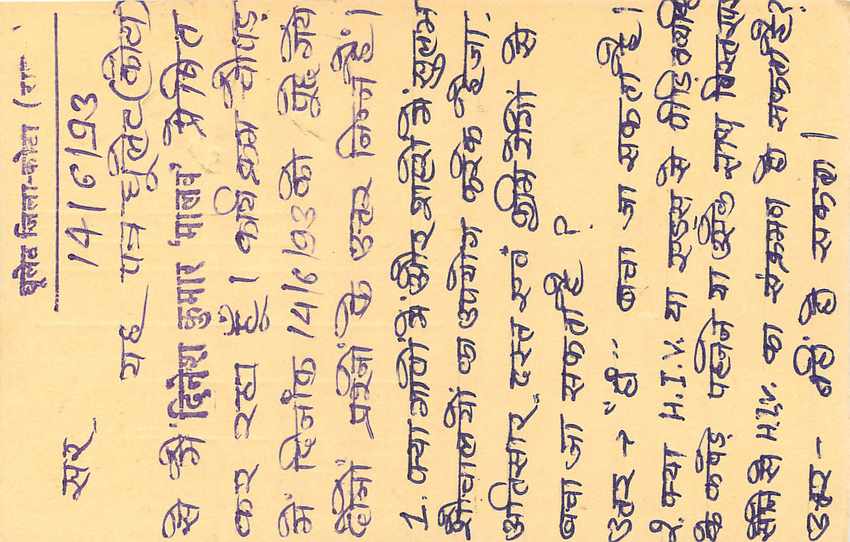 धूलेट जिला-कोटा (राज
14/6/93
सर
यह पत्र धूलेट (कोटा)
से मैं दिनेश कुमार 'मालव' प्रेषित
कर रहा हूँ। कार्यक्रम चौपड़
में दिनाँक 14/6/93 को पूछे गये
दोनों प्रश्नों के उत्तर निम्न हैं।
1. क्या गावों में और शहरो में सुलभ
शौचालयों का उपयोग करके हैजा,
अतिसार, दस्त एवं कृमि रोगों से
बचा जा सकता है ?
उत्तर → "हाँ" बचा जा सकता है।
2. क्या H.I.V. या एड्स से पीड़ित व्यक्ति
के कपड़े पहनने या उसके साथ बिस्तर पर
सोने से H.I.V. का संक्रमण हो सकता है?
उत्तर - नहिं हो सकता।